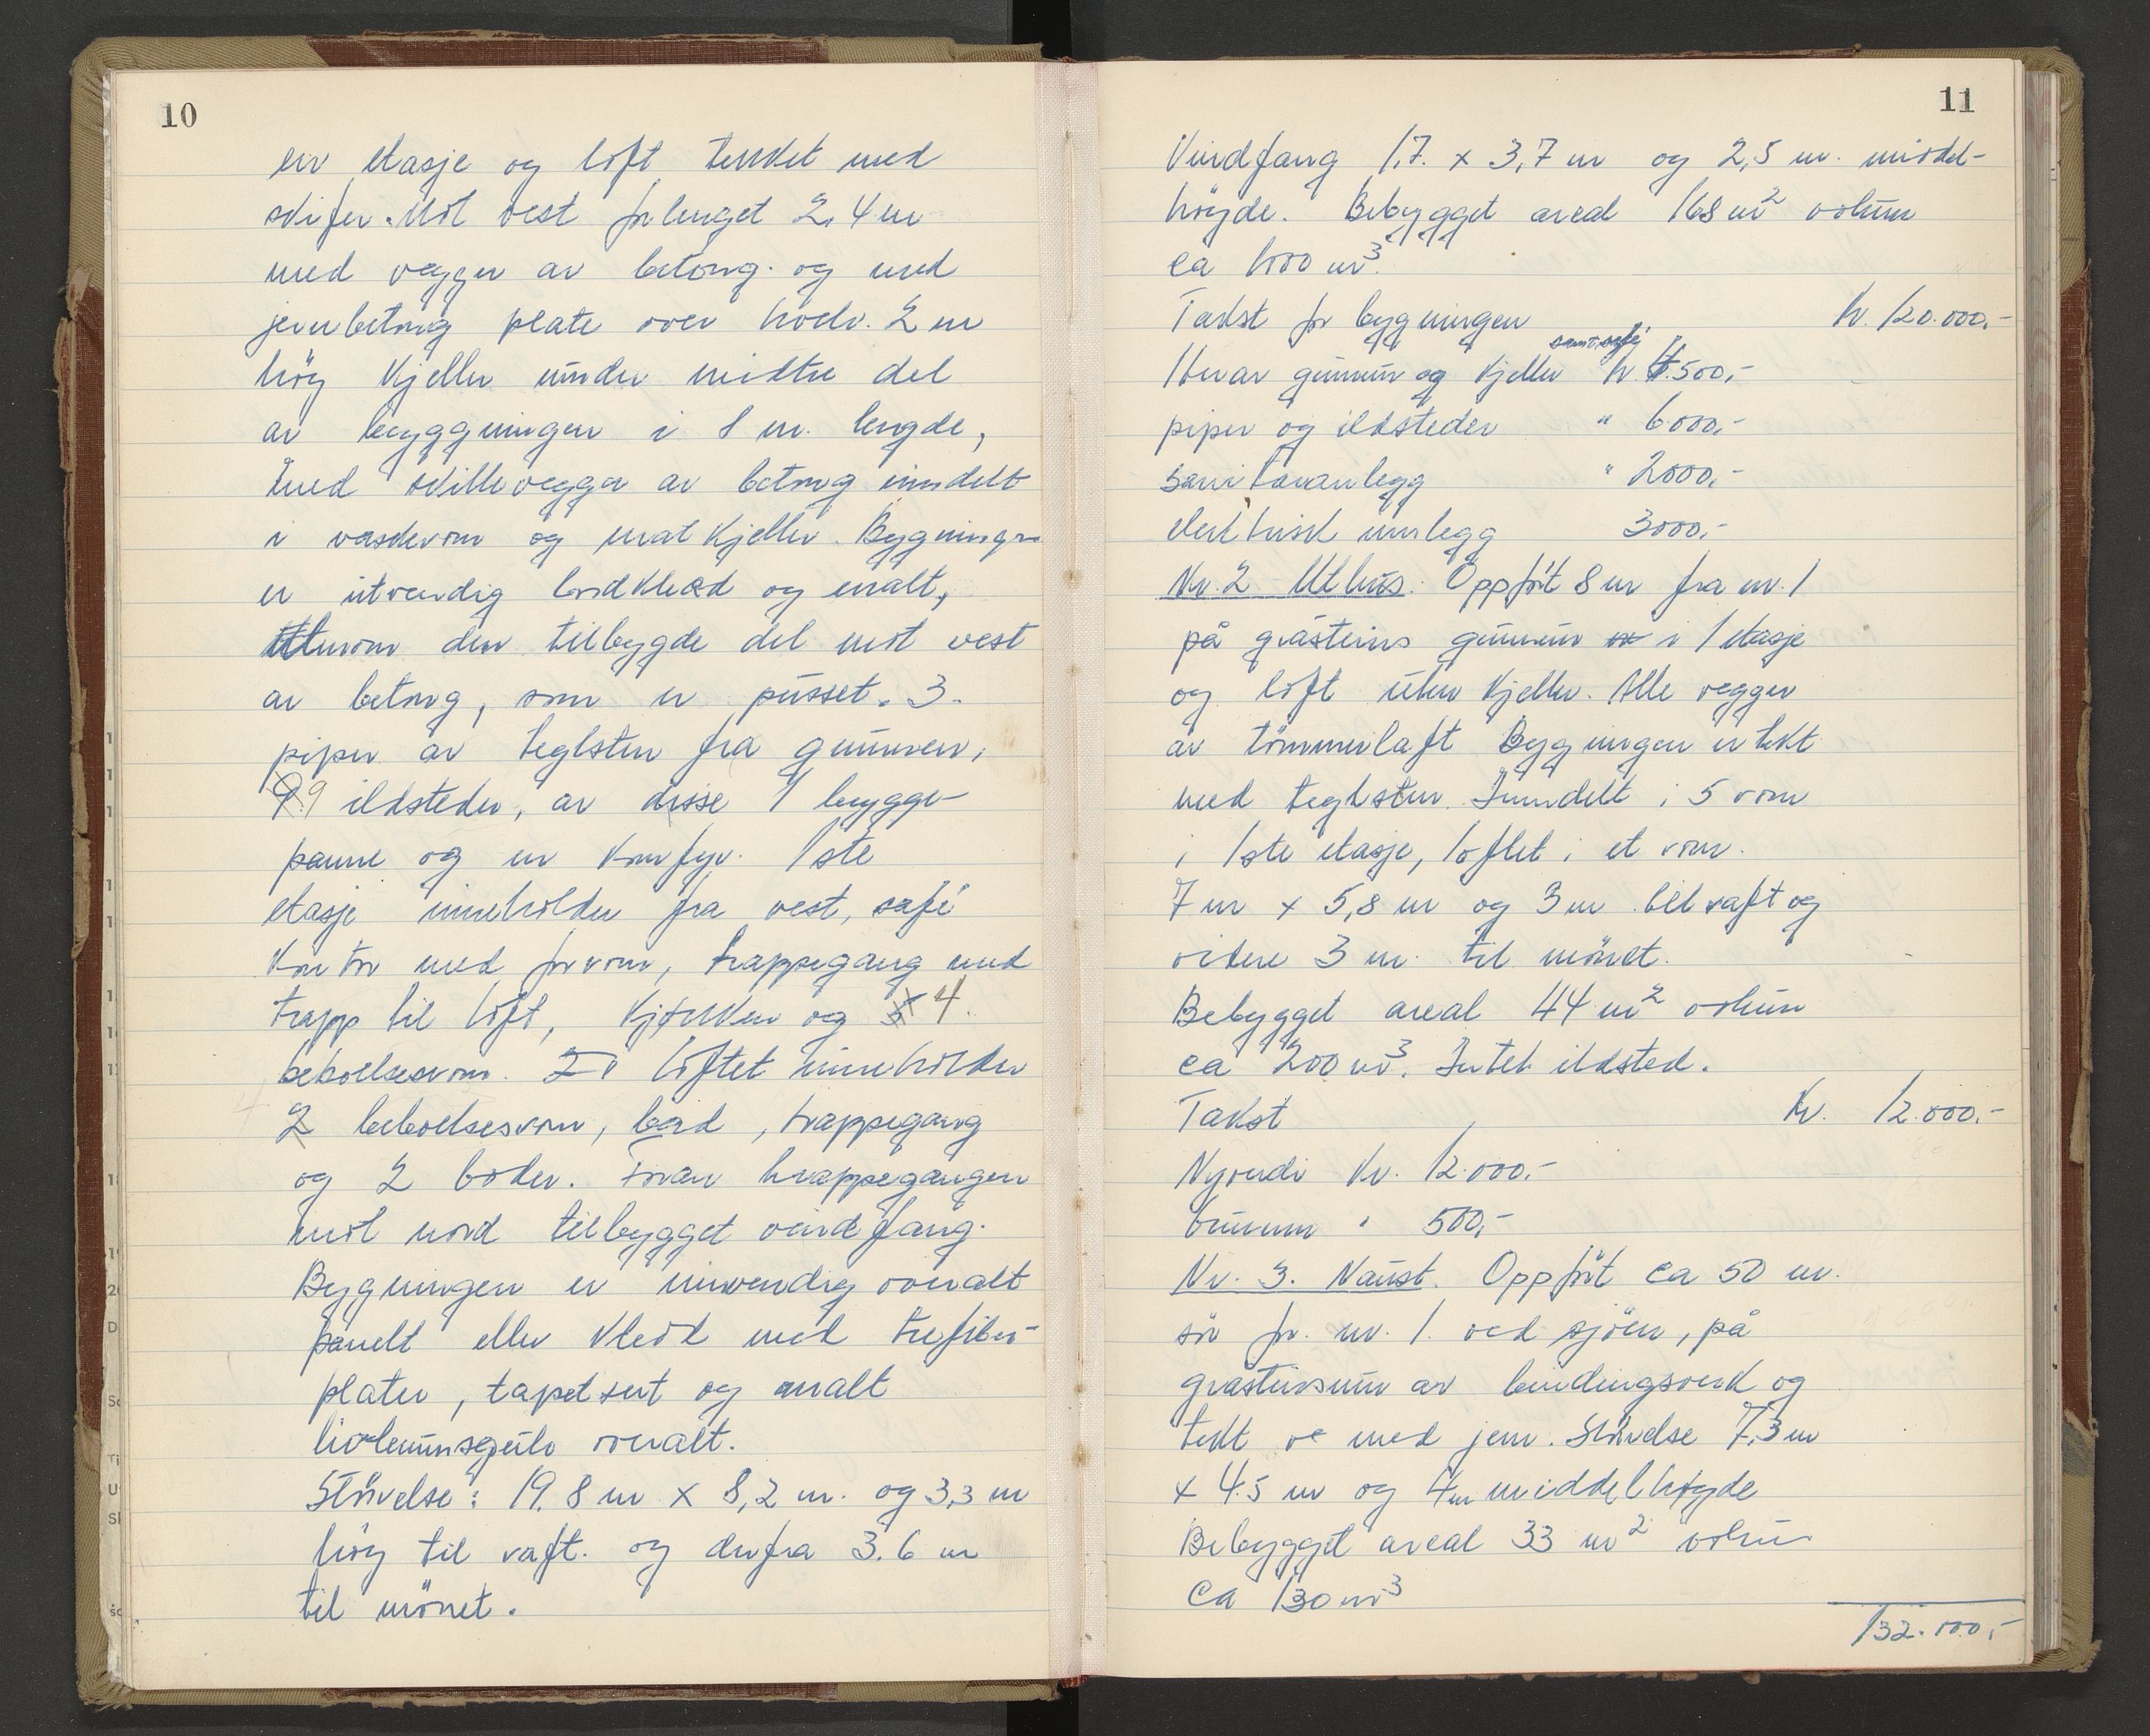 10
en etasje og loft tekket med
skifer. Mot vest forlenget 2,4 m
med vegger av betong. og med
jernbetong plate over hvelv. 2 m
høy kjeller under midtre del
av byggningen i 8 m. lengde,
med skillevegger av betong inndelt
i vaskerom og matkjeller. Bygningen
er utvendig bordkledd og malt,
utenom den tilbygde del mot vest
av betong, som er pusset. 3.
piper av teglsten fra grunnen,
9 ildsteder, av disse 1 brygge-
panne og en komfyr. 1ste
etasje inneholder fra vest, safé
kontor med forrom, trappegang med
trapp til loft, kjøkken og 4.
beboelsesrom. Loftet inneholder
2 beboelsesrom, bad, trappegang
og 2 boder. Foran trappegangen
mot nord tilbygget vindfang.
Bygningen er innvendig overalt
panelt eller kledd med trefiber-
plater, tapetsert og malt
linoleumsgulv overalt.
Störvelse: 19,8 m x 8,2 m. og 3,3 m
höy til raft. og derfra 3.6 m
til mönet.
11
Vindfang 1,7. x 3,7 m og 2,5 m. middel-
höyde. Bebygget areal 168 m² volum
ca 1000 m³.
Takst for bygningen kr. 120.000,-
samt safe
Herav grunnmur og kjeller kr. 4.500,-
piper og ildsteder " 6.000,-
sanitæranlegg " 2000,-
elektrisk innlegg 3000,-
Nr. 2 Uthus. Oppfört 8 m fra nr. 1
på gråsteins grunnmur i 1 etasje
og loft uten kjeller. Alle vegger
av tömmerlaft Bygningen er tekt
med teglsten. Inndelt i 5 rom
i 1ste etasje, loftet i et rom.
7 m x 5,8 m og 3 m til raft og
videre 3 m. til mönet.
Bebygget areal 44 m² volum
ca 200 m³. Intet ildsted.
Takst Kr. 12.000,-
Nyverdi kr. 12.000,-
Grunnm " 500,-
Nr. 3. Naust. Oppfört ca 50 m.
sör for nr. 1. ved sjöen, på
gråstensmur av bindingsverk og
tekt med jern. Störrelse 7,3 m
x 4.5 m og 4 m middelhøyde
Bebygget areal 33 m² volum
ca 130 m³
132.000,-